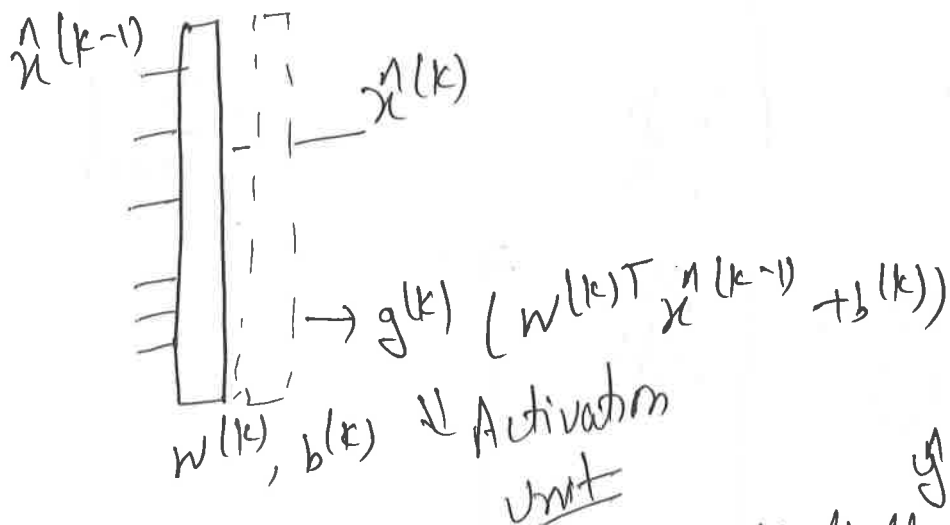 x̂^(k-1)
x̂^(k)
→ g^(k) (W^(k)T x̂^(k-1) + b^(k))
W^(k), b^(k) ↓ Activation
Unit
ŷ